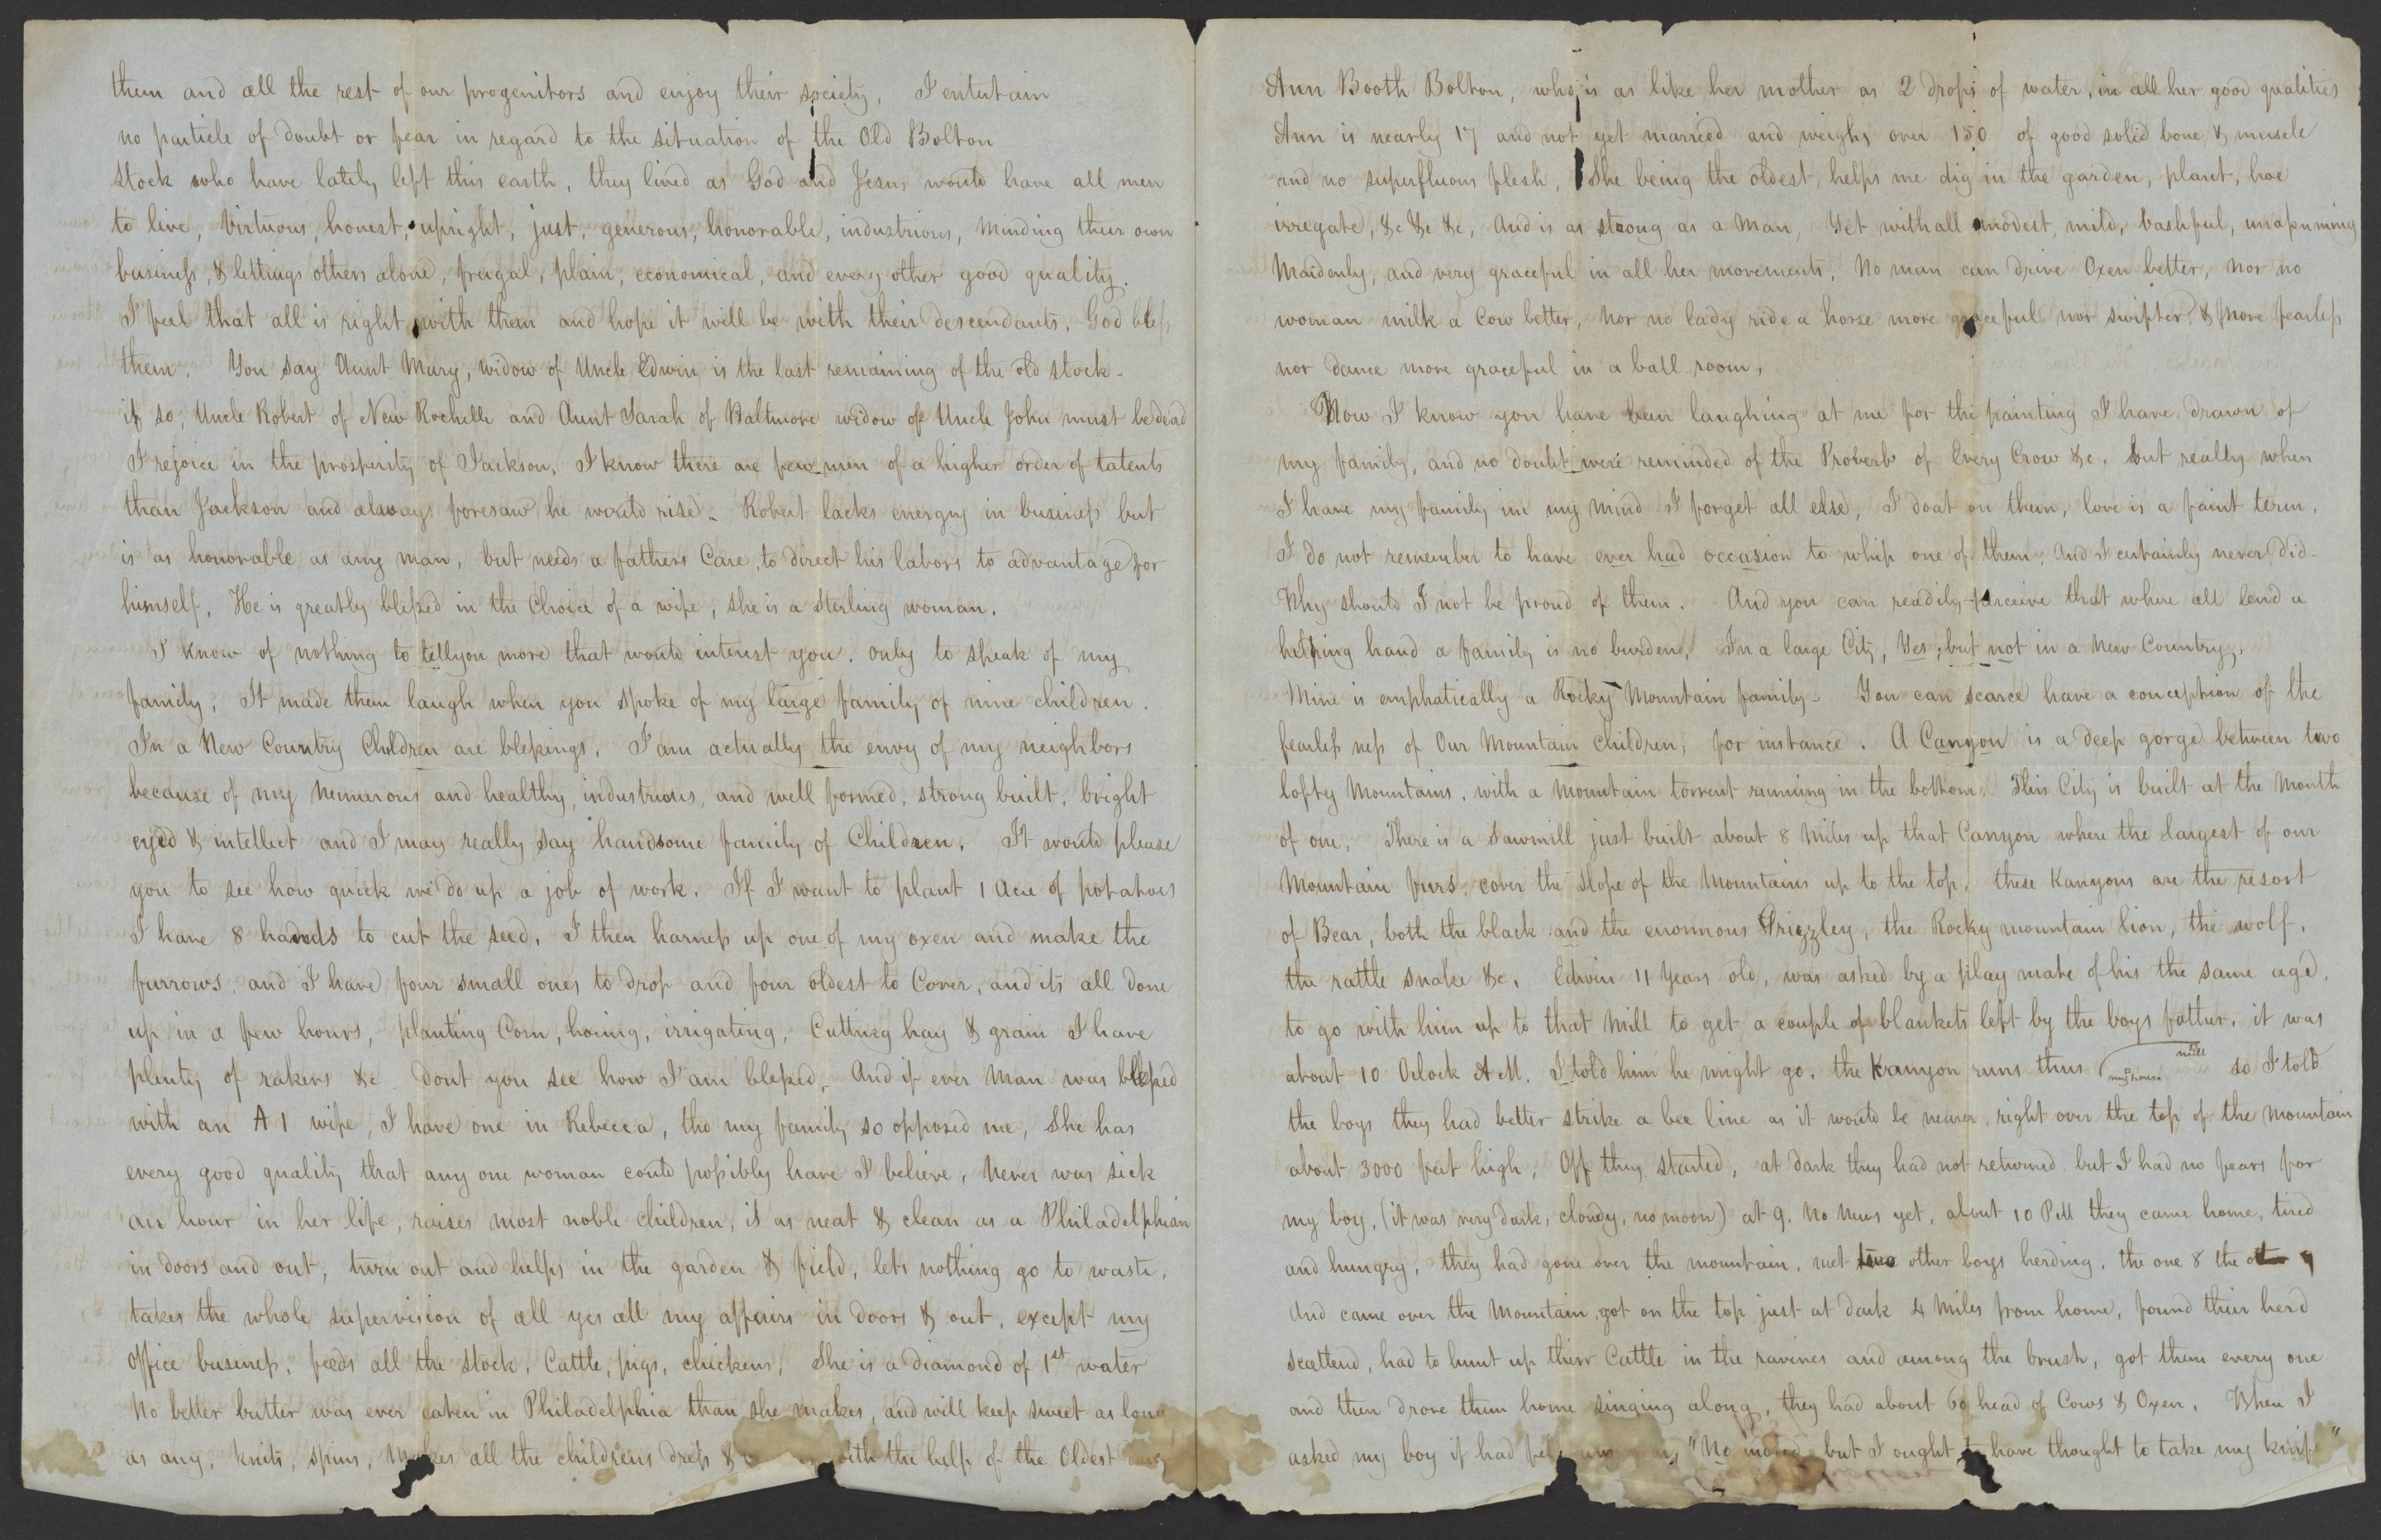 them and all the rest of our progenitors and enjoy their society, I entertain
no particle of doubt or fear in regard to the situation of the Old Bolton
stock who have lately left this earth, they lived as God and Jesus would have all men
to live, Virtuous, honest, upright, just, generous, honorable, industrious, minding their own
business, & lettings others alone, frugal, plain, economical, and every other good quality.
I feel that all is right with them and hope it will be with their descendants. God bless
them. You say Aunt Mary, widow of Uncle Edwin is the last remaining of the old stock.
if so, Uncle Robert of New Rochelle and Aunt Sarah of Baltimore widow of Uncle John must be dead
I rejoice in the prosperity of Jackson, I know there are few men of a higher order of talents
than Jackson and always foresaw he would rise. Robert lacks energy in business but
is as honorable as any man, but needs a fathers Care, to direct his labors to advantage for
himself, He is greatly blessed in the Choice of a wife, she is a Sterling woman.
I know of nothing to tell you more that would interest you. only to speak of my
family, It made them laugh when you spoke of my large family of nine children.
In a New Country Children are blessings. I am actually the envy of my neighbors
because of my numerous and healthy, industrious, and well formed, strong built, bright
eyed & intellect and I may really say handsome family of Children. It would please
you to see how quick we do up a job of work. If I want to plant 1 Acre of potatoes
I have 8 hands to cut the seed, I then harness up one of my oxen and make the
furrows, and I have four small ones to drop and four oldest to Cover, and its all done
up in a few hours, planting Corn, hoeing, irrigating, Cutting hay & grain I have
plenty of rakers &c Dont you see how I am blessed, And if ever Man was blessed
with an A 1 wife, I have one in Rebecca, tho my family so opposed me, She has
every good quality that any one woman could possibly have I believe, Never was sick
an hour in her life, raises most noble children, is as neat & clean as a Philadelphian
in doors and out, turn out and helps in the garden & field, lets nothing go to waste,
takes the whole supervision of all yes all my affairs in doors & out, except my
Office business, feeds all the stock, Cattle, pigs, chickens, She is a diamond of 1st water
No better butter was ever eaten in Philadelphia than she makes, and will keep sweet as long
as any, knits, spins, Makes all the childrens dress & with the help of the Oldest
Ann Booth Bolton, who is as like her mother as 2 drops of water, in all her good qualities
Ann is nearly 17 and not yet married and weighs over 150 of good solid bone & muscle
and no superfluous flesh, She being the oldest, helps me dig in the garden, plant, hoe
irregate, &c &c &c, And is as strong as a Man, Yet withall modest, mild, bashful, unassuming
Maidenly, and very graceful in all her movements, No man can drive Oxen better, Nor no
woman milk a Cow better, Nor no lady ride a horse more graceful nor swifter, & more fearless
nor dance more graceful in a ball room,
Now I know you have been laughing at me for the painting I have drawn of
my family, and no doubt were reminded of the Proverb of Every Crow &c. but really when
I have my family in my mind I forget all else, I doat on them, love is a faint term,
I do not remember to have ever had occasion to whip one of them, And I certainly never did.
Why should I not be proud of them. And you can readily perceive that where all lend a
helping hand a family is no burden, In a large City, Yes, but not in a New Country,
Mine is emphatically a Rocky Mountain family. You can scarce have a conception of the
fearlessness of Our Mountain Children, for instance. A Canyon is a deep gorge between two
loftey Mountains, with a Mountain torrent running in the bottom. This City is built at the Mouth
of one, There is a Sawmill just built about 8 Miles up that Canyon where the largest of our
Mountain furs, cover the slope of the Mountains up to the top, these Kanyons are the resort
of Bear, both the black and the enormous Grizzley, the Rocky mountain lion, the wolf,
the rattle snake &c, Edwin 11 Years old, was asked by a play mate of his the same age,
to go with him up to that Mill to get a couple of blankets left by the boys father, it was
about 10 Oclock A M. I told him he might go, the Kanyon runs thus my house mill so I told
the boys they had better strike a bee line as it would be nearer, right over the top of the Mountain
about 3000 feet high, Off they started, at dark they had not returned but I had no fears for
my boy, (it was very dark, cloudy, no moon) at 9. No News yet, about 10 P M they came home, tired
and hungry, they had gone over the mountain, met two other boys herding, the one 8 the ot 9
And came over the Mountain, got on the top just at dark 4 Miles from home, found their herd
scattered, had to hunt up their Cattle in the ravines and among the brush, got them every one
and then drove them home singing along, they had about 60 head of Cows & Oxen. When I
asked my boy if had "No but I ought to have thought to take my knife"